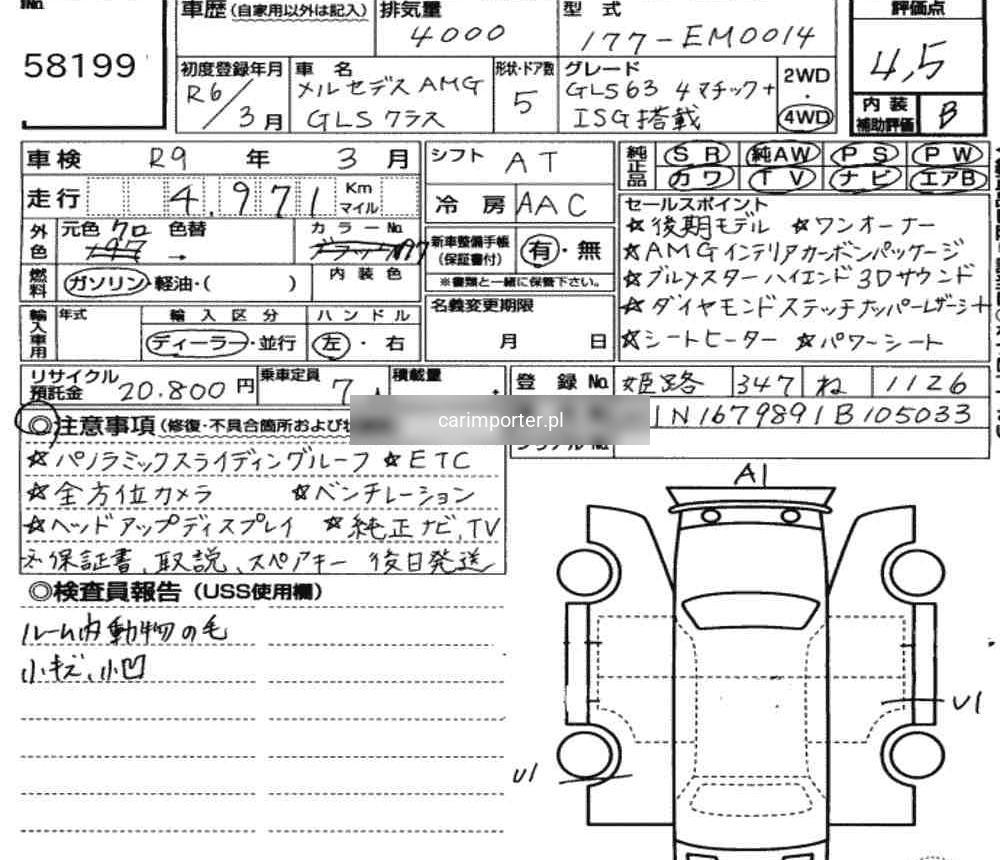 車歴(自家用以外は記入) 排気量 型式 評価点
58199 4000 177-EM0014 4,5
初度登録年月 車名 形状・ドア数 グレード 2WD・4WD
R6/3月 メルセデスAMG GLSクラス 5 GLS63 4マチック+ ISG搭載
内装補助評価 B
車検 R9年 3月 シフト AT 純正品 SR 純AW PS PW
カワ TV ナビ エアB
走行 4,971 Km マイル 冷房 AAC
セールスポイント
外色 元色 クロ 色替 → カラーNo. 197
新車整備手帳(保証書付) 有・無
☆後期モデル ☆ワンオーナー
☆AMGインテリアカーボンパッケージ
燃料 ガソリン・軽油・( ) 内装色 ※書類と一緒に保管下さい。
☆ブルメスターハイエンド3Dサウンド
輸入車用 年式 輸入区分 ハンドル 名義変更期限
☆ダイヤモンドステッチナッパーレザーシート
ディーラー・並行 左・右 月 日
☆シートヒーター ☆パワーシート
リサイクル預託金 20.800円 乗車定員 7人 積載量 登録No. 姫路 347 ね 1126
1N1679891B105033
carimporter.pl
◎注意事項(修復・不具合箇所および
☆パノラミックスライディングルーフ ☆ETC
☆全方位カメラ ☆ベンチレーション
☆ヘッドアップディスプレイ ☆純正ナビ、TV
※保証書、取説、スペアキー 後日発送
◎検査員報告(USS使用欄)
ルーム内動物の毛
小キズ、小凹
A1
U1
U1